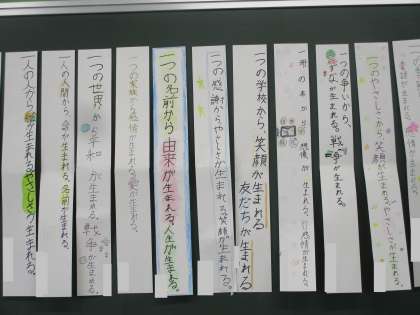 一つのやさしさから笑顔が生まれるやさしさが生まれる。
一つの争いから、
きずなが生まれる。戦争が生まれる。
一冊の本から想像が生まれる。行感情が生まれる。
一つの学校から笑顔が生まれる
友だちが生まれる
一つの感謝からやさしさが生まれる笑顔が生まれる。
一つの名前から由来が生まれる。人生が生まれる。
一つの家族から感情が生まれる愛が生まれる。
一つの世界から平和が生まれる。戦争が生まれる。
一人の人間から、命が生まれる。名前が生まれる。
一人の人から
が生まれる。やさしさが生まれる。